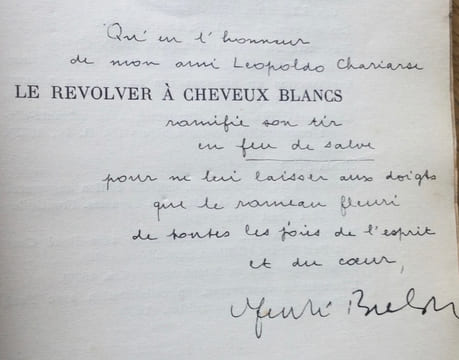 Qu'en l'honneur
de mon ami Leopoldo Chariarse
LE REVOLVER À CHEVEUX BLANCS
ramifie son tir
en feu de salve
pour ne lui laisser aux doigts
que le rameau fleuri
de toutes les joies de l'esprit
et du cœur,
André Breton